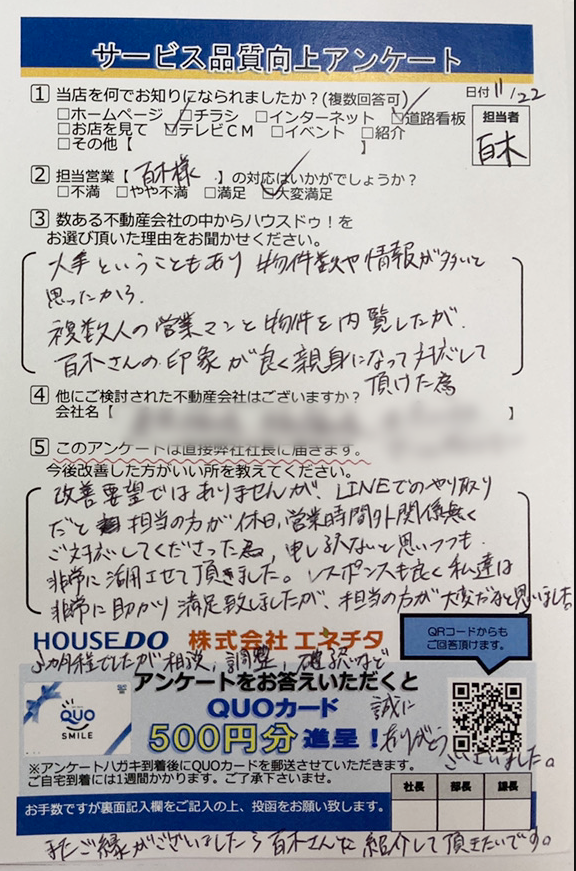 サービス品質向上アンケート
日付 11/22
1 当店を何でお知りになられましたか?(複数回答可)
□ホームページ □チラシ □インターネット ☑道路看板
□お店を見て ☑テレビCM □イベント □紹介
□その他【 】
担当者
百木
2 担当営業【 百木様 】の対応はいかがでしょうか?
□不満 □やや不満 □満足 ☑大変満足
3 数ある不動産会社の中からハウスドゥ!を
お選び頂いた理由をお聞かせください。
大手ということもあり 物件数や情報が多いと
思ったから.
複数人の営業マンと物件を内覧したが.
百木さんの印象が良く親身になって対応して
頂けた為
4 他にご検討された不動産会社はございますか?
会社名【 】
5 このアンケートは直接弊社社長に届きます。
今後改善した方がいい所を教えてください。
改善要望ではありませんが、LINEでのやり取り
だと 担当の方が休日,営業時間外関係無く
ご対応してくださった為, 申し訳ないと思いつつも.
非常に活用させて頂きました。レスポンスも良く私達は
非常に助かり満足致しましたが、担当の方が大変だなと思いました
HOUSEDO 株式会社エネチタ
QRコードからも
ご回答頂けます。
カ月程でしたが相談,調整,確認など
アンケートをお答えいただくと
QUO
SMILE
QUOカード
500円分進呈!
誠に
ありがとう
ございました。
※アンケートハガキ到着後にQUOカードを郵送させていただきます。
ご自宅到着には1週間かかります。ご了承下さいませ。
社長 部長 課長
お手数ですが裏面記入欄をご記入の上、投函をお願い致します。
またご縁がございましたら百木さんに紹介して頂きたいです。